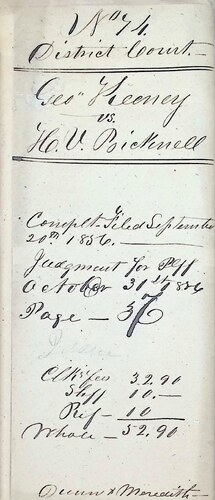 No 74.
District Court.
Geo. Keeney
vs.
H. V. Bicknell
Complt Filed September
20th 1856.
Judgment for Plff
October 31st 1856
Page — 37
Clks fees 32.90
Shff 10.—
Ref — 10
Whole — 52.90
Dunn & Meredith